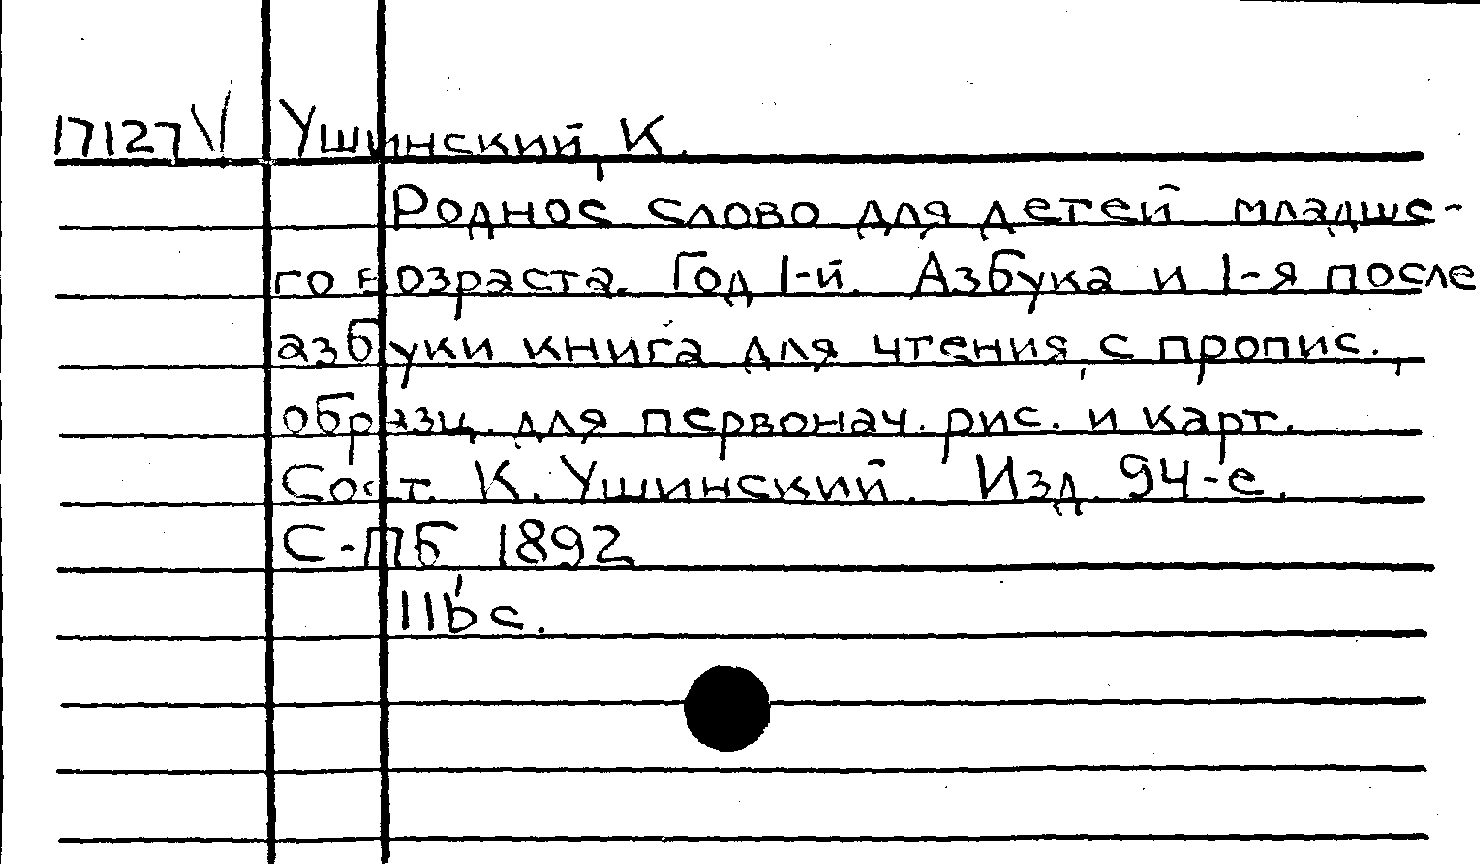 17127 V Ушинский, К.
Родное слово для детей младше-
го возраста. Год 1-й. Азбука и 1-я после
азбуки книга для чтения, с пропис.,
образц. для первонач. рис. и карт.
Сост. К. Ушинский. Изд. 94-е.
С-ПБ 1892
116 с.